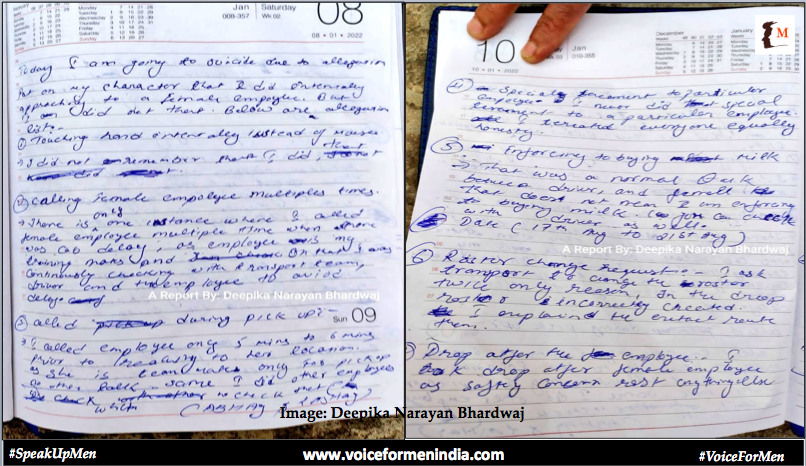 Jan
008-357
Saturday
Wk 02
08
08 • 01 • 2022
Today I am going to suicide due to allegation
Put on my character that I did intentally
approching to a female employee. But
I did not that. Below are allegation
list:-
① Touching hand intentally instead of mouse
→ I did not remember that I did,
② Calling female empolyee multiples times.
→ There is only one instance where I called
female employee multiple time when there
was cab delay, as employee is my
training mans and On that I was
Continously checking with transport team,
driver and the employee to avoid
delay
A Report By: Deepika Narayan Bhardwaj
③ alled pick up during pick up?-
Sun 09
→ I called employee only 5 mins to 6 mins
prior to location
as she is only for pickup
Same I did other employees
to check that
which
10
Jan
010-355
10 • 01 • 2022
December
January
M
Special tocement to particular
employee I never did special
to a particular employee
treated everyone equally
honesty.
⑤ Enforcing to buying Milk
→ That was a normal talk
between driver, and femell
that does not mean I am enforcing
to buying milk. you can check
with driver as well.
Date (17th Aug to 21st Aug)
A Report By: Deepika Narayan Bhardwaj
⑥ Roster change request - I ask
transport to change the roster
twice only reason, In the drop
roster incorrectly created.
I the entire route
them.
Drop after the employee - I
drop after female employee
as safty concern rest anythingelse
Image: Deepika Narayan Bhardwaj
#SpeakUpMen
www.voiceformenindia.com
#VoiceForMen